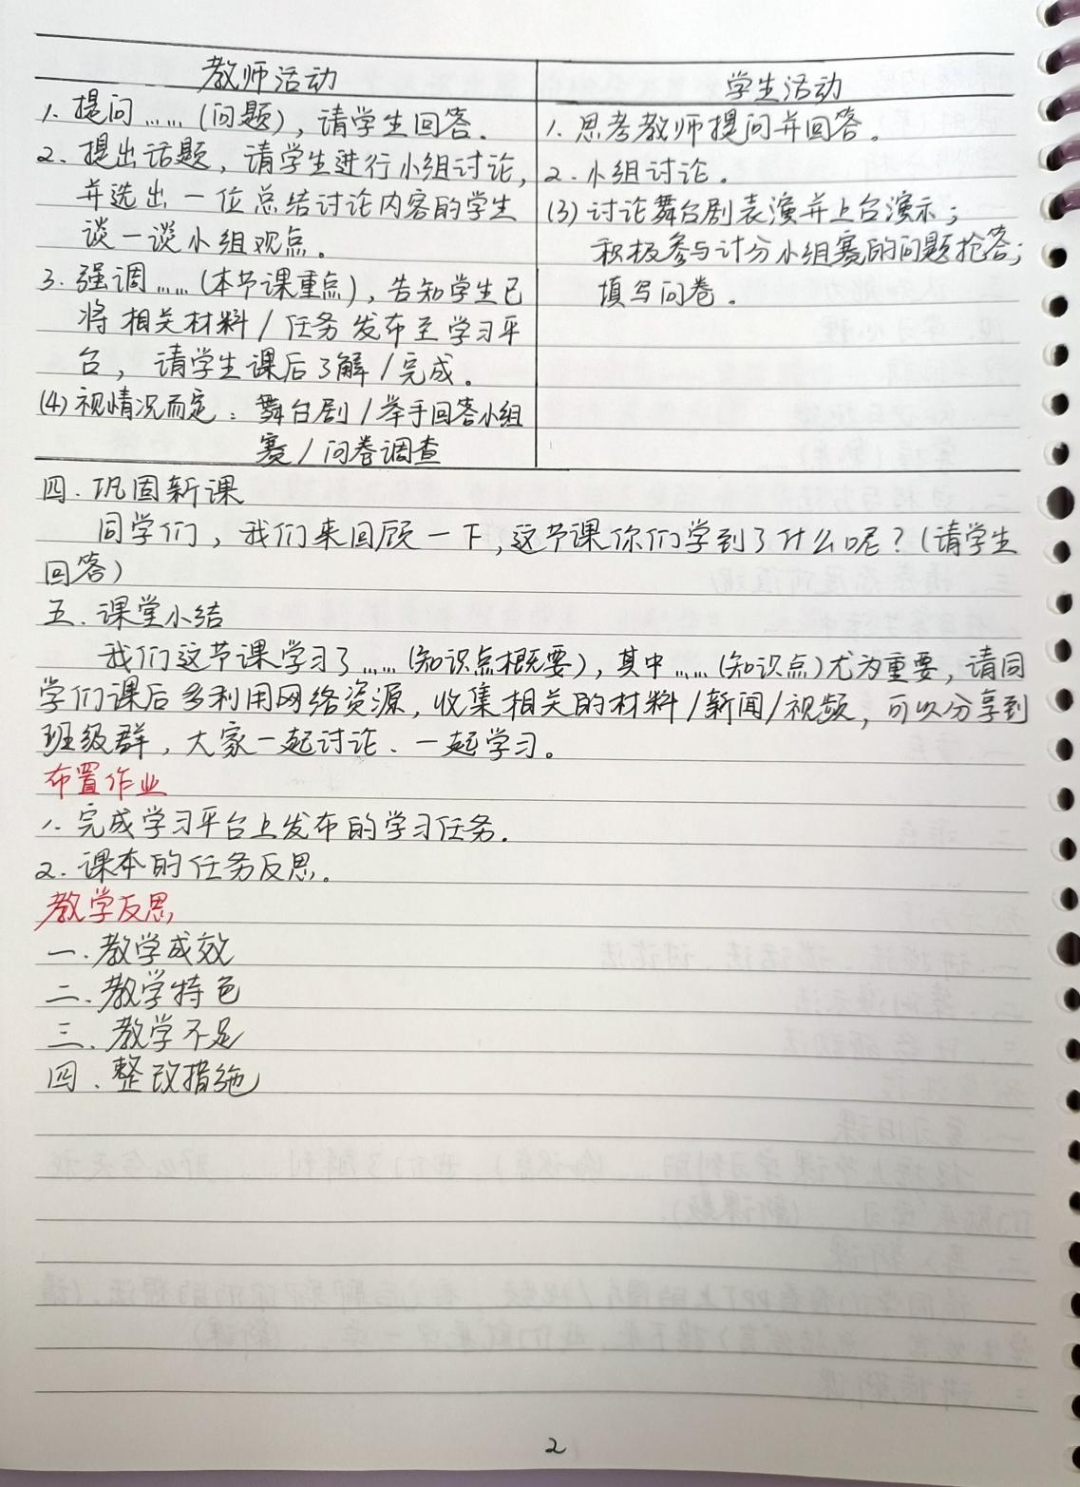 教师活动
1. 提问……(问题)，请学生回答.
2. 提出话题，请学生进行小组讨论，
并选出一位总结讨论内容的学生
谈一谈小组观点。
3. 强调……(本节课重点)，告知学生已
将相关材料/任务发布至学习平
台，请学生课后了解/完成。
(4) 视情况而定：舞台剧/举手回答小组
赛/问卷调查
学生活动
1. 思考教师提问并回答。
2. 小组讨论.
(3) 讨论舞台剧表演并上台演示；
积极参与计分小组赛的问题抢答；
填写问卷.
四.巩固新课
同学们，我们来回顾一下，这节课你们学到了什么呢？(请学生
回答)
五.课堂小结
我们这节课学习了……(知识点概要)，其中……(知识点)尤为重要，请同
学们课后多利用网络资源，收集相关的材料/新闻/视频，可以分享到
班级群，大家一起讨论、一起学习。
布置作业
1. 完成学习平台上发布的学习任务.
2. 课本的任务反思.
教学反思
一.教学成效
二.教学特色
三.教学不足
四.整改措施
2